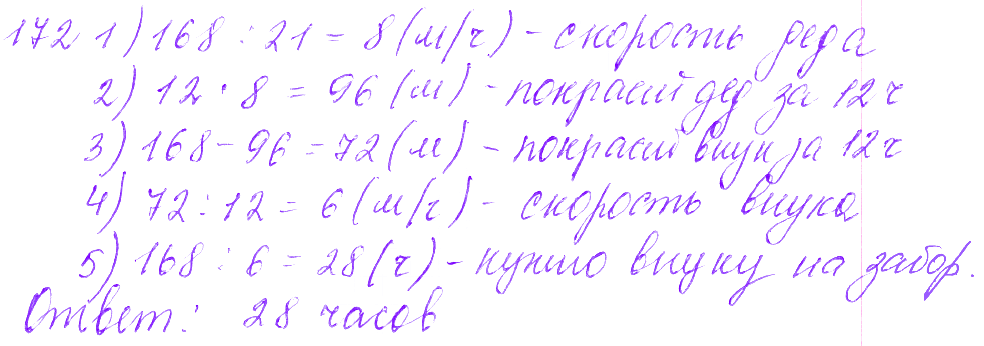 172 1) 168 : 21 = 8 (м/ч) - скорость деда
2) 12 · 8 = 96 (м) - покрасил дед за 12 ч
3) 168 - 96 = 72 (м) - покрасил внук за 12 ч
4) 72 : 12 = 6 (м/ч) - скорость внука
5) 168 : 6 = 28 (ч) - нужно внуку на забор.
Ответ: 28 часов